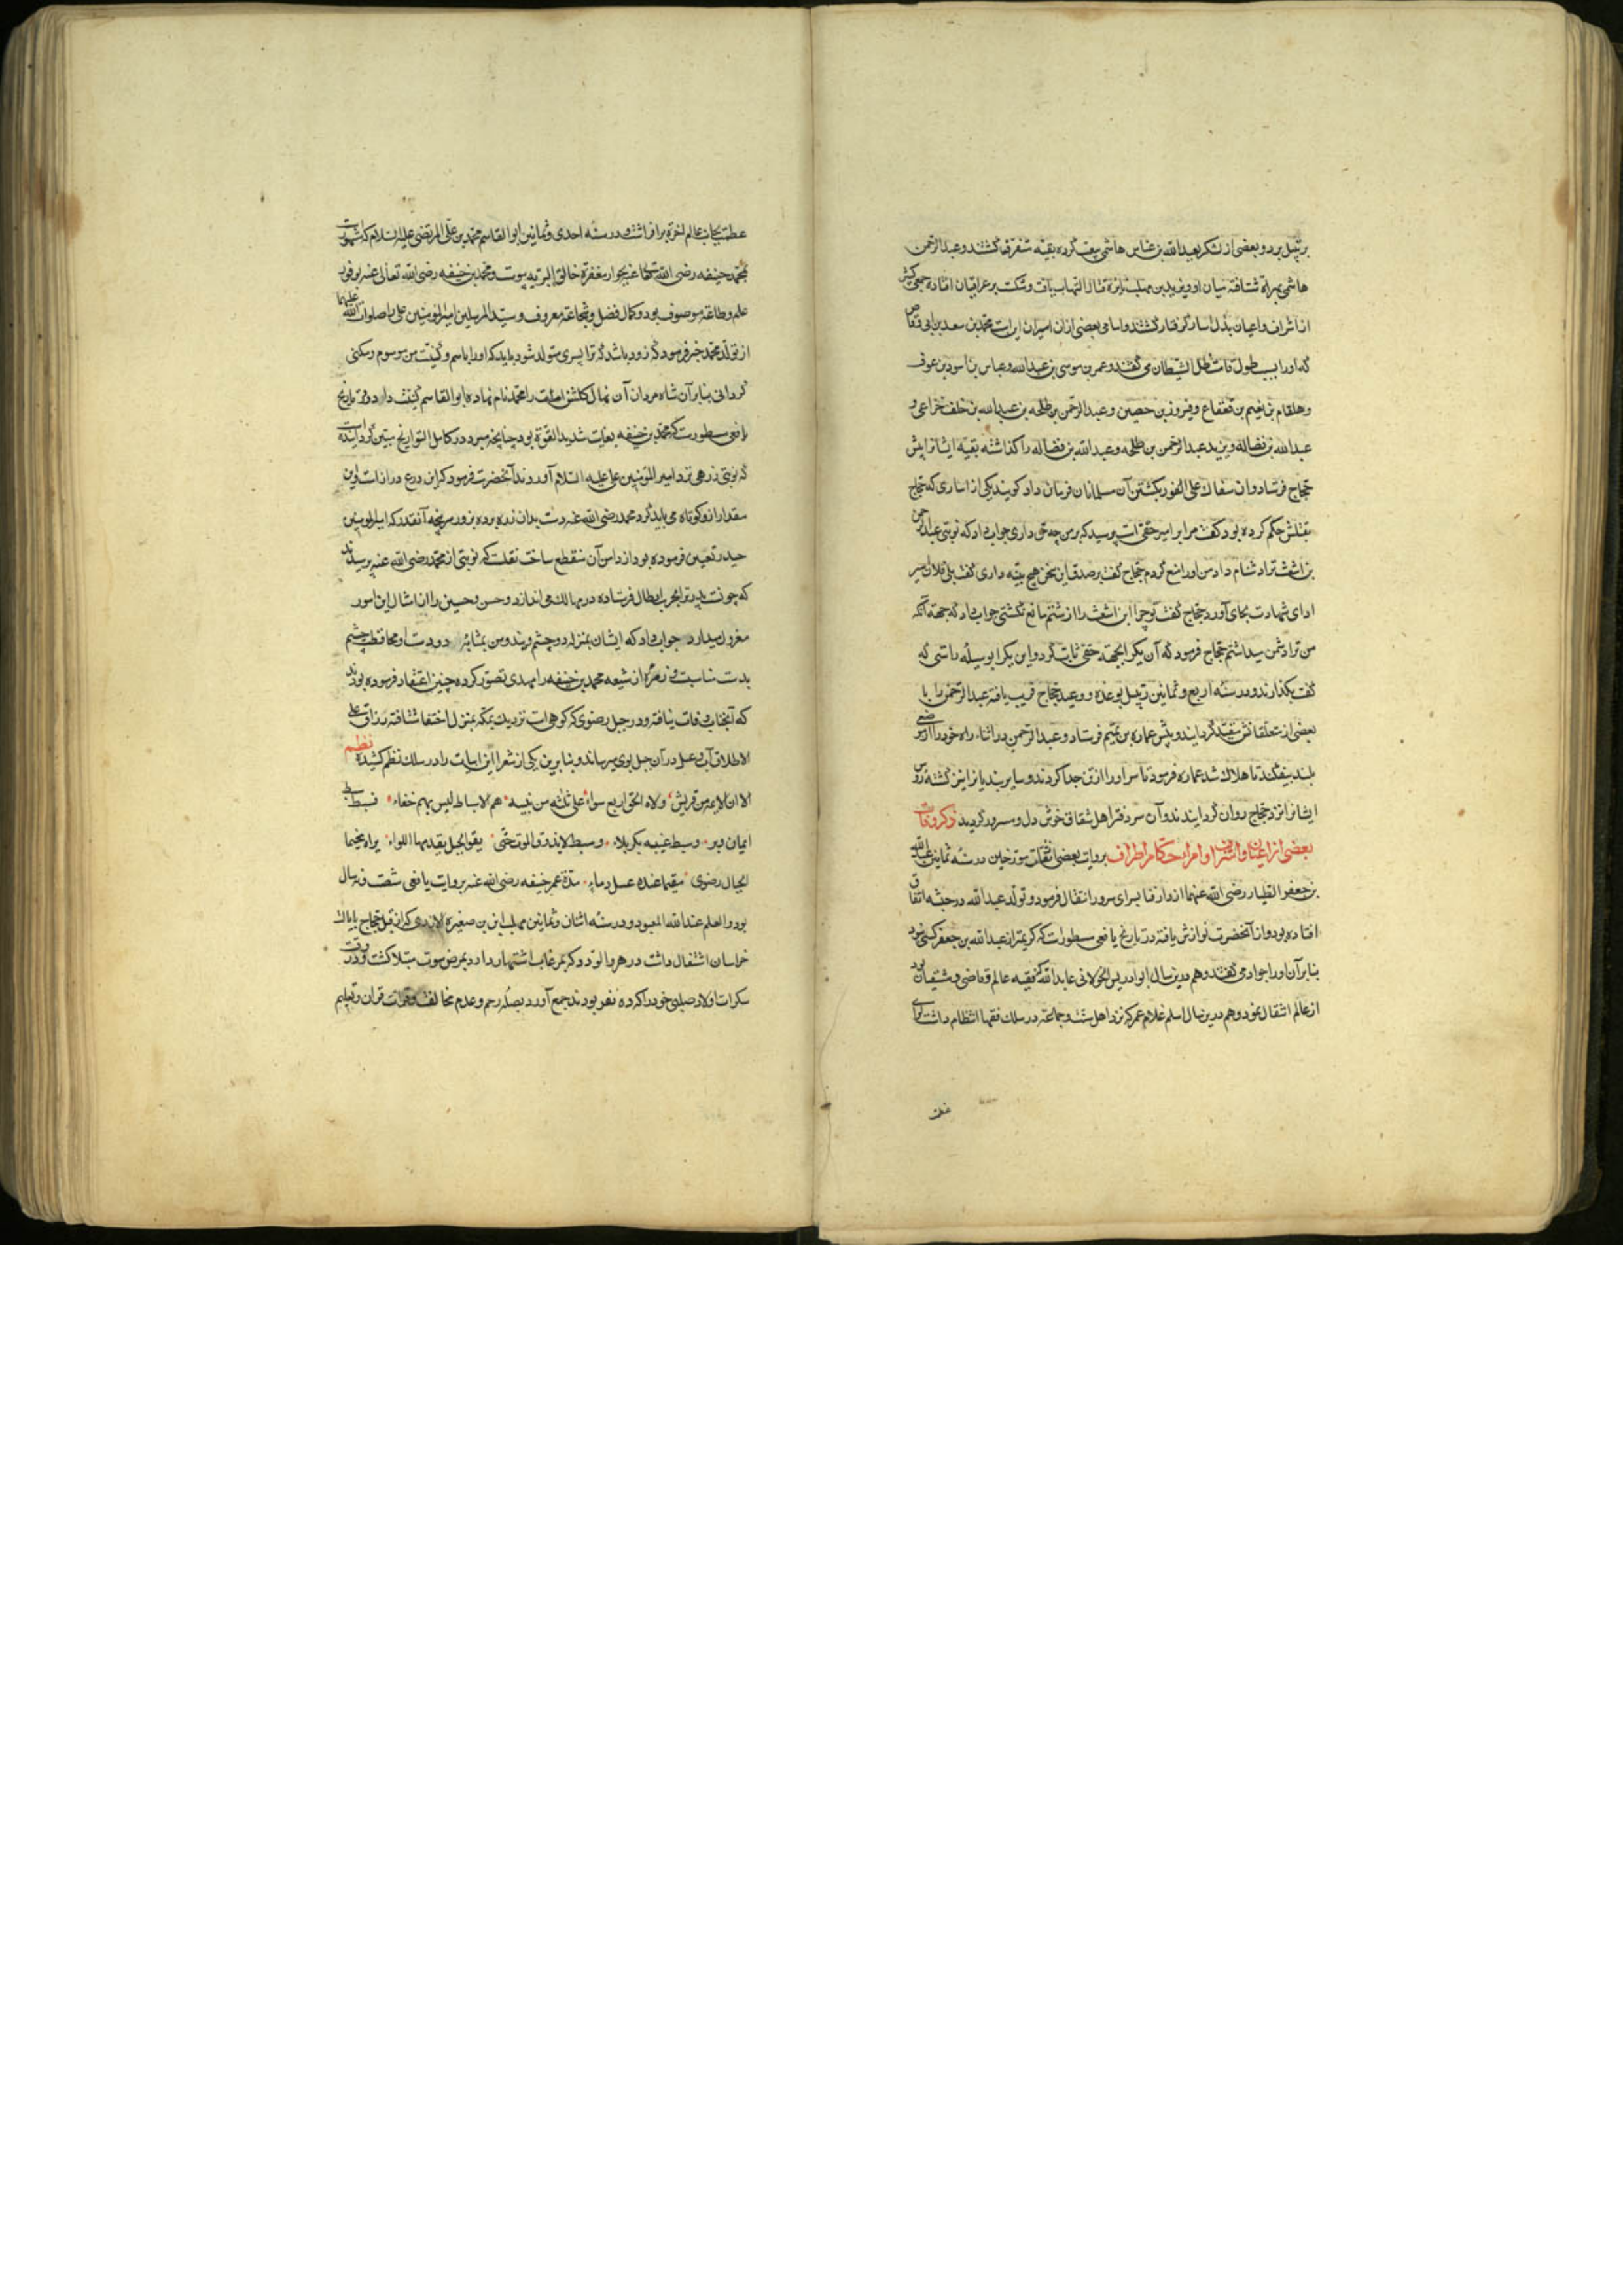 رتبیل برد و بعضی از لشکر بعبدالله بن عباس هاشمی بیعت کرده بقیه متفرق گشتند و عبدالرحمن
هاشمی بهراة شتافته میان او و یزید بن مهلب نایره قتال التهاب یافت و شکست بر عراقیان افتاده جمعی کثیر
از اشراف و اعیان بذل اسار گرفتار گشتند و اسامی بعضی ازان اسیران اینست محمد بن سعد بن ابی وقاص
که او را بسبب طول قامت ظل الشیطان می گفتند و عمر بن موسی بن عبدالله و عباس بن اسود بن عوف
و هلقام بن نعیم بن قعقاع و فیروز بن حصین و عبدالرحمن بن طلحه بن عبدالله بن خلف خزاعی و
عبدالله بن فضاله و یزید عبدالرحمن بن طلحه و عبدالله بن فضاله را گذاشته بقیه ایشانرا پیش
حجاج فرستاد و ان سفاک علی الفور بکشتن آن مسلمانان فرمان داد گویند یکی از اساری که حجاج
بقتلش حکم کرده بود گفت مرا بر امیر حقی است پرسید که بر من چه حق داری جواب داد که نوبتی عبدالرحمن
بن اشعث ترا دشنام داد من او را منع کردم حجاج گفت بر صدق این سخن هیچ بینه داری گفت بلی فلان اسیر
ادای شهادت بجای آورد حجاج گفت تو چرا ابن اشعث را از شتم مانع نگشتی جواب داد که جهة آنکه
من ترا دشمن میداشتم حجاج فرمود که آن یکرا بجهة حقی ثابت کرد و این یکرا بوسیله راستی که
گفت بگذارند و در سنه اربع و ثمانین رتبیل بوعده و وعید حجاج فریب یافته عبدالرحمن را با
بعضی از متعلقانش مقید گردانید و پیش عماره بن تمیم فرستاد و عبدالرحمن در اثناء راه خود را از موضعی
بلند بیفکند تا هلاک شد عماره فرمود تا سر او را از تن جدا کردند و سایر بندیانرا نیز کشته روس
ایشانرا نزد حجاج روان گردانیدند و آن سر دفتر اهل شقاق خوش دل و مسرور گردید ذکر وفات
بعضی از اعیان و اشراف و امراء و حکام اطراف بروایت بعضی از ثقات مورخین در سنه ثمانین عبدالله
بن جعفر الطیار رضی الله عنهما از دار فنا بسرای سرور انتقال فرمود و تولد عبدالله در حبشه اتفاق
افتاده بود و از آنحضرت نوازش یافته در تاریخ یافعی مسطورست که کریمتر از عبدالله بن جعفر کسی نبود
بنابر آن او را جواد می گفتند و هم درین سال ابو ادریس الخولانی عابدالله که فقیه عالم و قاضی دمشقیان بود
از عالم انتقال نمود و هم درین سال اسلم غلام عمر که نزد اهل سنت و جماعة در سلک فقها انتظام داشت لوای
عظمت بجانب عالم اخرة برافراشت و در سنه احدی و ثمانین ابوالقاسم محمد بن علی المرتضی علیه السلام که مشهورست
بمحمد حنیفه رضی الله تعالی عنه بجوار مغفرة خالق البریه پیوست و محمد بن حنیفه رضی الله تعالی عنه بوفور
علم و طاعة موصوف بود و کمال فضل و شجاعة معروف و سید المرسلین امیرالمؤمنین علی را صلوات الله علیهما
از تولد محمد خبر فرمود که زود باشد که ترا پسری متولد شود باید که او را باسم و کنیت من موسوم و مکنی
گردانی بنابر آن شاه مردان آن نهال گلشن امامت را محمد نام نهاده ابوالقاسم کنیت داد و در تاریخ
یافعی مسطورست که محمد بن حنیفه بغایت شدید القوة بود چنانچه مبرد در کامل التواریخ مبین گردانیده است
که نوبتی زرهی نزد امیر المؤمنین علی علیه السلام آوردند آنحضرت فرمود که این درع درازست و این
مقدار ازو کوتاه می باید کرد محمد رضی الله عنه دست بدان زره برده بزور سرپنجه آنقدر که امیرالمؤمنین
حیدر تعیین فرموده بود از دامن آن منقطع ساخت نقلست که نوبتی از محمد رضی الله عنه پرسیدند
که چونست پدر ترا بحرب ابطال فرستاده در مهالک می اندازد و حسن و حسین را از امثال این امور
معزول میدارد جواب داد که ایشان بمنزله دو چشم ویند و من بمثابه دو دست او محافظت چشم
بدست مناسبست و زمره از شیعه محمد بن حنیفه را مهدی تصور کرده چنین اعتقاد فرموده بودند
که آنجناب وفات نیافته و در جبل رضوی که کوهی است نزدیک بمکه بمنزل اختفا شتافته رزاق علی
الاطلاق آب و عسل در آن جبل بوی میرساند و بنابرین یکی از شعرا این ابیات را در سلک نظم کشیده نظم
الا ان الائمه من قریش ولاه الحق اربع سواء علی ثلثه من نبیه هم الاسباط لیس بهم خفاء فسبط سبط
ایمان و بر وسبط غیبه بکربلا وسبط لا یذوق الموت حتی یقود الخیل یقدمها اللواء یراه مخیما
بجبال رضوی مقیما عنده عسل و ماء مدة عمر حنیفه رضی الله عنه بروایت یافعی شصت و نه سال
بود و العلم عند الله المعبود و در سنه اثنان و ثمانین مهلب ابن بن صغیره الازدی که از قبل حجاج بایالت
خراسان اشتغال داشت در هر والرود و کرم غایب اشتهار داد و بمرض موت مبتلا گشت و در وقت
سکرات اولاد صلبی خود را که ده نفر بودند جمع آورد بصله رحم و عدم مخالفت و قرائت قران و تعلیم